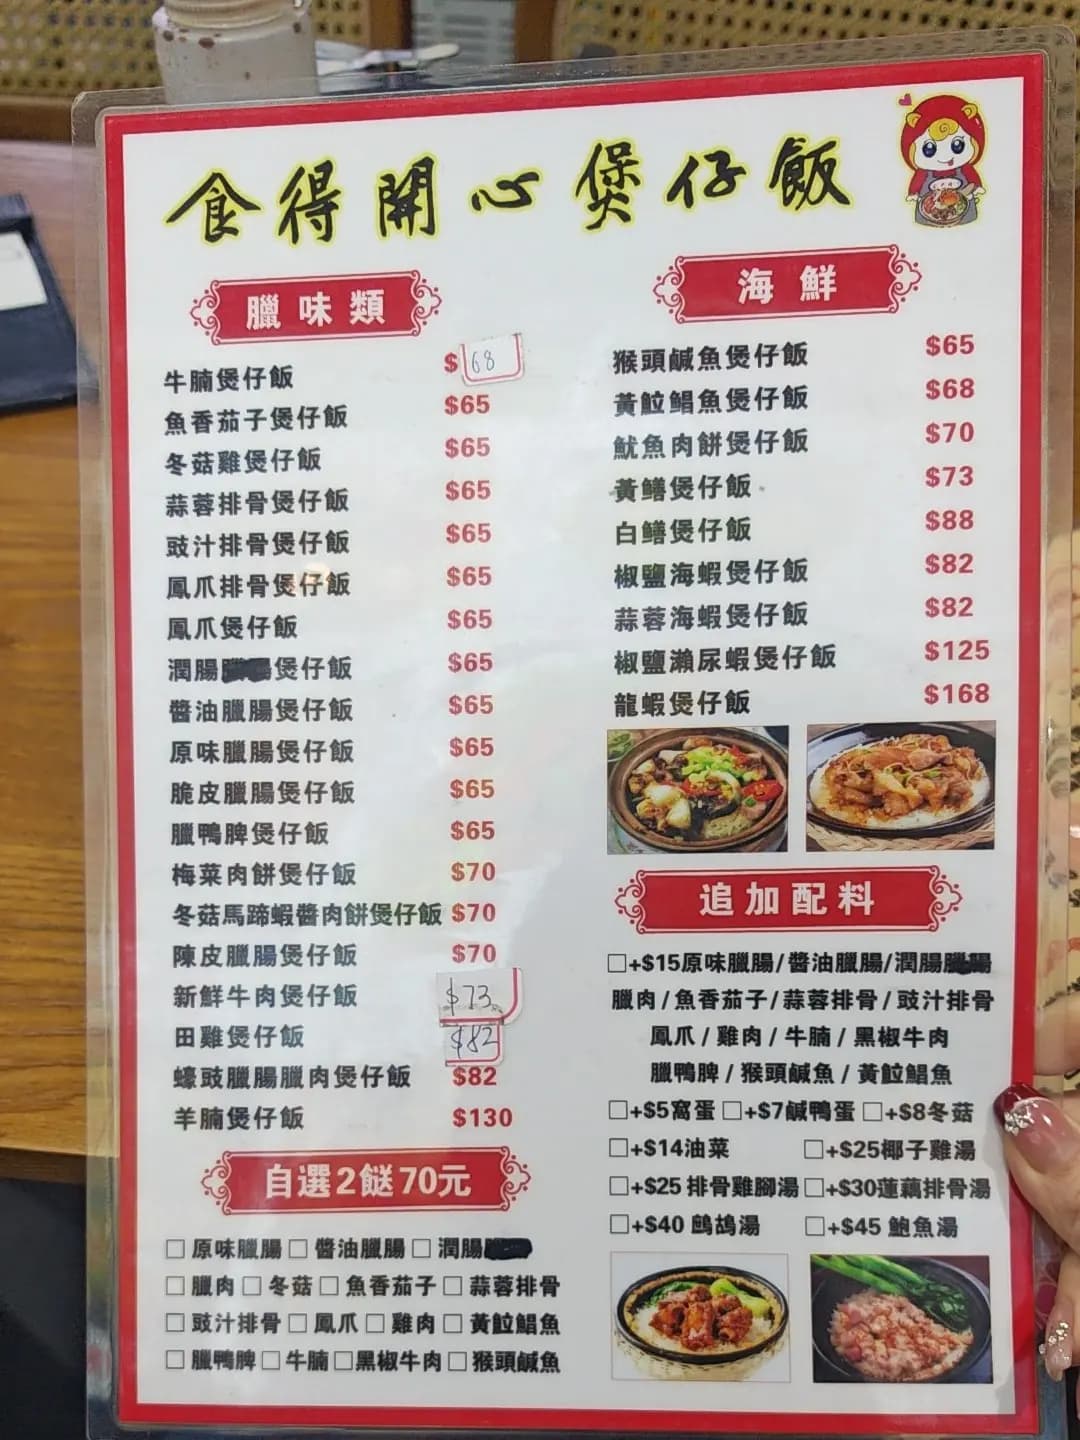 食得開心煲仔飯
臘味類
牛腩煲仔飯 $68
魚香茄子煲仔飯 $65
冬菇雞煲仔飯 $65
蒜蓉排骨煲仔飯 $65
豉汁排骨煲仔飯 $65
鳳爪排骨煲仔飯 $65
鳳爪煲仔飯 $65
潤腸煲仔飯 $65
醬油臘腸煲仔飯 $65
原味臘腸煲仔飯 $65
脆皮臘腸煲仔飯 $65
臘鴨脾煲仔飯 $65
梅菜肉餅煲仔飯 $70
冬菇馬蹄蝦醬肉餅煲仔飯 $70
陳皮臘腸煲仔飯 $70
新鮮牛肉煲仔飯 $73
田雞煲仔飯 $82
蠔豉臘腸臘肉煲仔飯 $82
羊腩煲仔飯 $130
自選2餸70元
□原味臘腸□醬油臘腸□潤腸
□臘肉□冬菇□魚香茄子□蒜蓉排骨
□豉汁排骨□鳳爪□雞肉□黃䱽鯧魚
□臘鴨脾□牛腩□黑椒牛肉□猴頭鹹魚
海鮮
猴頭鹹魚煲仔飯 $65
黃䱽鯧魚煲仔飯 $68
魷魚肉餅煲仔飯 $70
黃鱔煲仔飯 $73
白鱔煲仔飯 $88
椒鹽海蝦煲仔飯 $82
蒜蓉海蝦煲仔飯 $82
椒鹽瀨尿蝦煲仔飯 $125
龍蝦煲仔飯 $168
追加配料
□+$15原味臘腸/醬油臘腸/潤腸
臘肉/魚香茄子/蒜蓉排骨/豉汁排骨
鳳爪/雞肉/牛腩/黑椒牛肉
臘鴨脾/猴頭鹹魚/黃䱽鯧魚
□+$5窩蛋□+$7鹹鴨蛋□+$8冬菇
□+$14油菜 □+$25椰子雞湯
□+$25排骨雞腳湯□+$30蓮藕排骨湯
□+$40鷓鴣湯 □+$45鮑魚湯